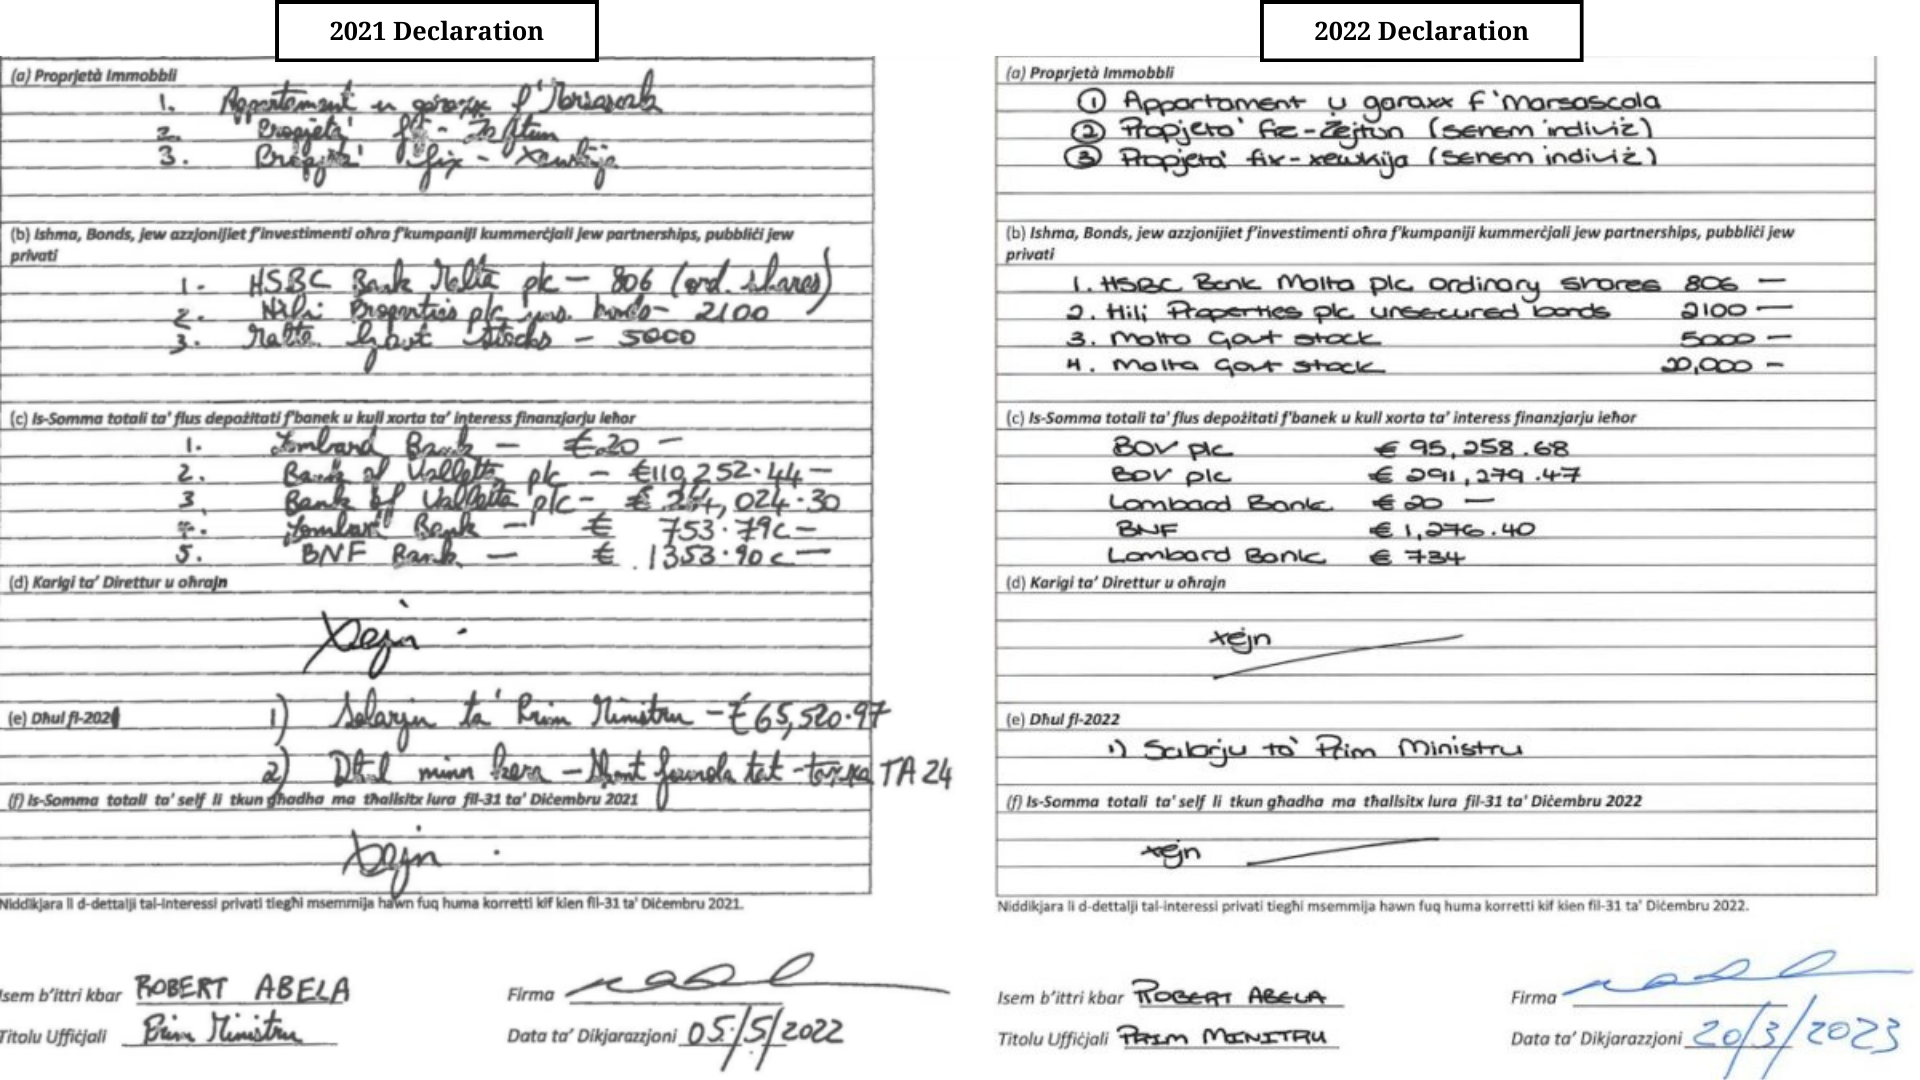 2021 Declaration
(a) Proprjetà Immobbli
1. Appartament u garaxx f'Marsascala
2. Propjeta' fiż-Żejtun
3. Propjeta' fix-Xewkija
(b) Ishma, Bonds, jew azzjonijiet f'investimenti oħra f'kumpaniji kummerċjali jew partnerships, pubbliċi jew
privati
1. HSBC Bank Malta plc — 806 (ord. shares)
2. Hili Properties plc uns. bonds - 2100
3. Malta Govt Stocks - 5000
(c) Is-Somma totali ta' flus depożitati f'banek u kull xorta ta' interess finanzjarju ieħor
1. Lombard Bank — €20 —
2. Bank of Valletta plc — €110,252.44 —
3. Bank of Valletta plc — € ,024.30
4. Lombard Bank — € 753.79c —
5. BNF Bank — € 1353.90c —
(d) Karigi ta' Direttur u oħrajn
Xejn.
(e) Dħul fl-2021 1) Salarju ta' Prim Ministru — €65,520.97
2) Dħul minn kera — Skont formola tat-taxxa TA 24
(f) Is-Somma totali ta' self li tkun għadha ma tħallsitx lura fil-31 ta' Diċembru 2021
Xejn.
Niddikjara li d-dettalji tal-interessi privati tiegħi msemmija hawn fuq huma korretti kif kien fil-31 ta' Diċembru 2021.
Isem b'ittri kbar ROBERT ABELA Firma
Titolu Uffiċjali Prim Ministru Data ta' Dikjarazzjoni 05/5/2022
2022 Declaration
(a) Proprjetà Immobbli
① Appartament u garaxx f'Marsascala
② Propjeta' fiż-Żejtun (senem indiviż)
③ Propjeta' fix-xewkija (senem indiviż)
(b) Ishma, Bonds, jew azzjonijiet f'investimenti oħra f'kumpaniji kummerċjali jew partnerships, pubbliċi jew
privati
1. HSBC Bank Malta plc ordinary shares 806 —
2. Hili Properties plc unsecured bonds 2100 —
3. Malta Govt stock 5000 —
4. Malta Govt stock 20,000 —
(c) Is-Somma totali ta' flus depożitati f'banek u kull xorta ta' interess finanzjarju ieħor
BOV plc € 95,258.68
BOV plc € 291,279.47
Lombard Bank € 20 —
BNF € 1,276.40
Lombard Bank € 734
(d) Karigi ta' Direttur u oħrajn
xejn
(e) Dħul fl-2022
1) Salarju ta' Prim Ministru
(f) Is-Somma totali ta' self li tkun għadha ma tħallsitx lura fil-31 ta' Diċembru 2022
xejn
Niddikjara li d-dettalji tal-interessi privati tiegħi msemmija hawn fuq huma korretti kif kien fil-31 ta' Diċembru 2022.
Isem b'ittri kbar ROBERT ABELA Firma
Titolu Uffiċjali PRIM MINITRU Data ta' Dikjarazzjoni 20/3/2023